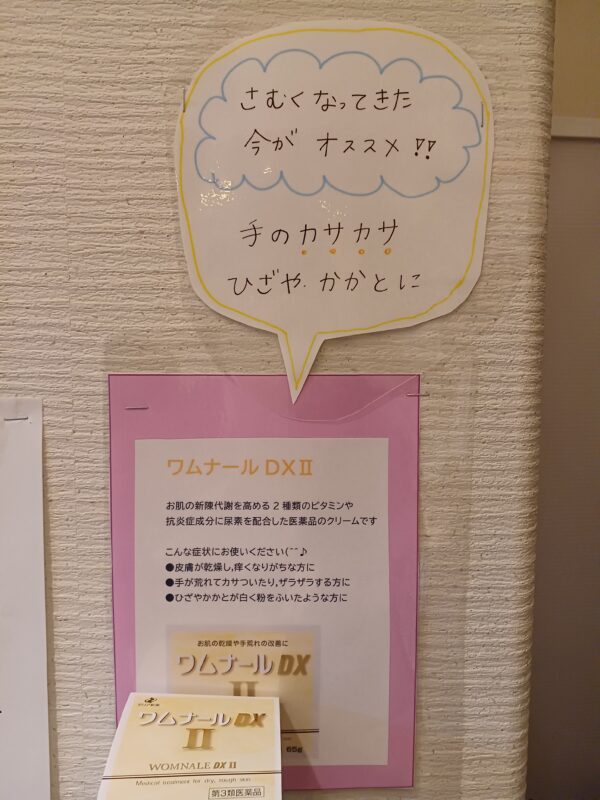 さむくなってきた
今が オススメ!!
手のカサカサ
ひざや かかとに
ワムナール DXⅡ
お肌の新陳代謝を高める2種類のビタミンや
抗炎症成分に尿素を配合した医薬品のクリームです
こんな症状にお使いください(^^♪
●皮膚が乾燥し,痒くなりがちな方に
●手が荒れてカサついたり,ザラザラする方に
●ひざやかかとが白く粉をふいたような方に
お肌の乾燥や手荒れの改善に
ワムナール DX
Ⅱ
65g
ワムナール DX
Ⅱ
WOMNALE DX Ⅱ
Medical treatment for dry, rough skin
第3類医薬品